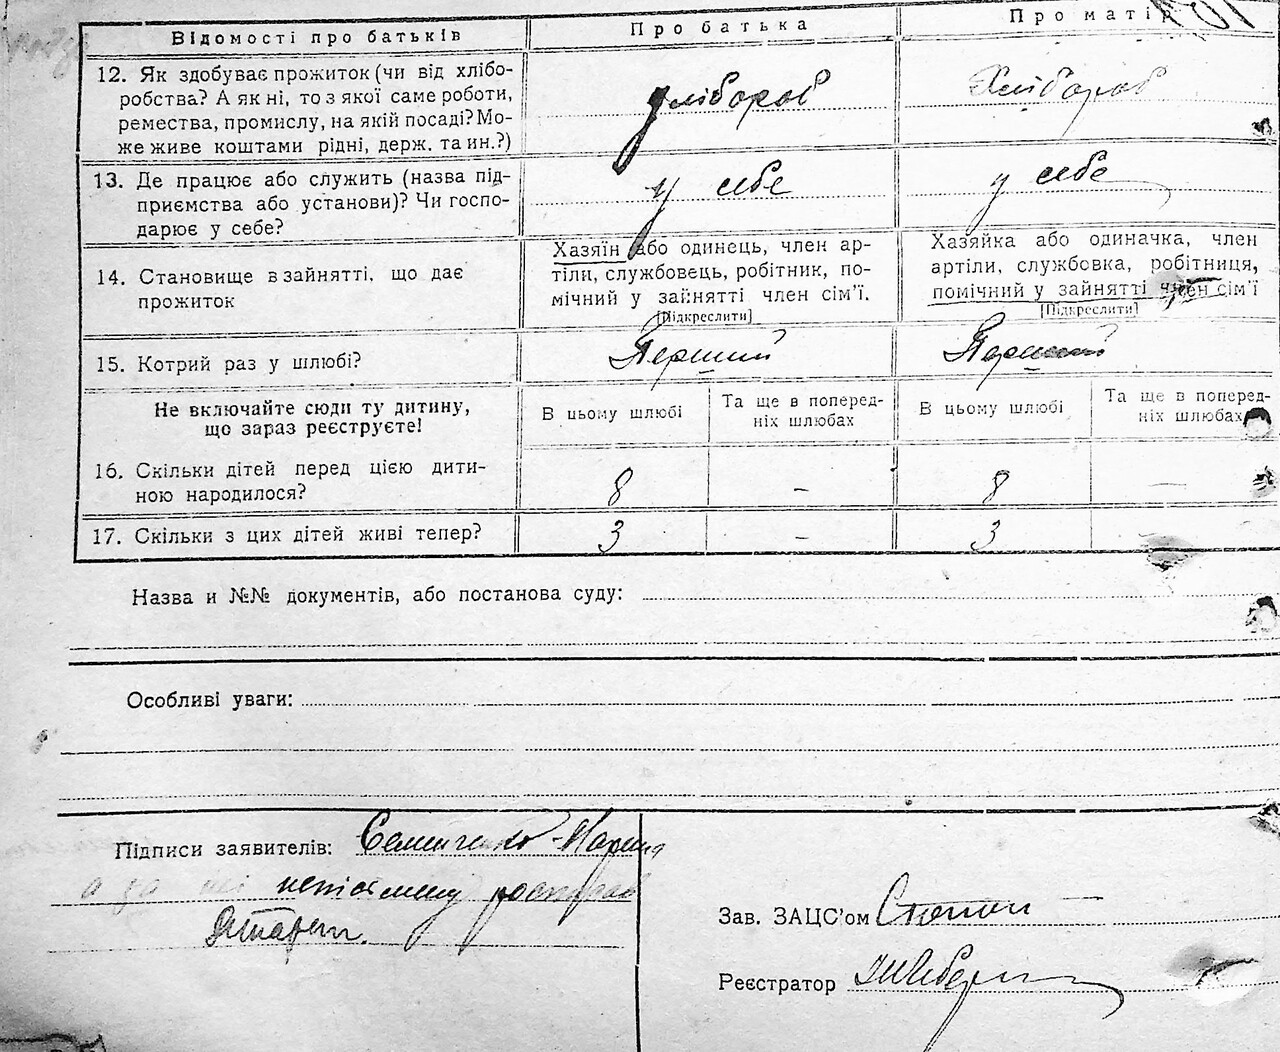 Відомості про батьків Про батька Про матір
12. Як здобуває прожиток (чи від хлібо-
робства? А як ні, то з якої саме роботи,
ремества, промислу, на якій посаді? Мо-
же живе коштами рідні, держ. та ин.?)
хлібороб Хлібороб
13. Де працює або служить (назва під-
приємства або установи)? Чи госпо-
дарює у себе?
у себе у себе
14. Становище в зайнятті, що дає
прожиток
Хазяїн або одинець, член ар-
тіли, службовець, робітник, по-
мічний у зайнятті член сім'ї.
[Підкреслити]
Хазяйка або одиначка, член
артіли, службовка, робітниця,
помічний у зайнятті член сім'ї
[Підкреслити]
15. Котрий раз у шлюбі? Перший Перший
Не включайте сюди ту дитину,
що зараз реєструєте!
В цьому шлюбі
Та ще в поперед-
ніх шлюбах
В цьому шлюбі
Та ще в поперед-
ніх шлюбах
16. Скільки дітей перед цією дити-
ною народилося?
8 - 8 —
17. Скільки з цих дітей живі тепер? 3 - 3 -
Назва и №№ документів, або постанова суду:
Особливі уваги:
Підписи заявителів: Семенченко Марина
а за неї неписьмену
Зав. ЗАЦС'ом
Реєстратор